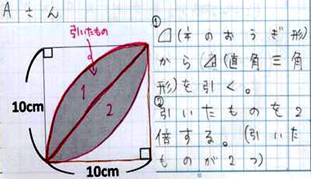 Aさん
引いたもの
1
2
10cm
10cm
①
(のおうぎ形)
から(直角三角
形)を引く。
②
引いたものを2
倍する。(引いた
ものが2つ)